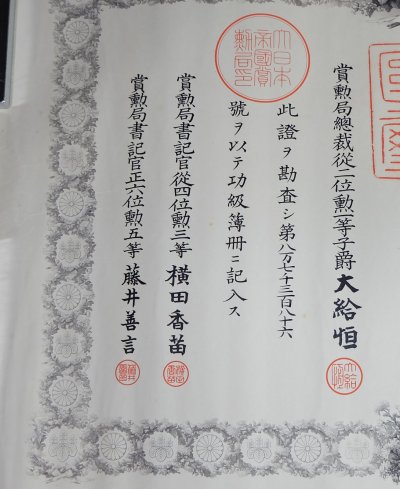 賞勲局總裁從二位勲一等子爵大給恒
大日本帝國賞勲局印
此證ヲ勘査シ第八万七千三百八十六
號ヲ以テ功級簿册ニ記入ス
賞勲局書記官從四位勲三等横田香苗
賞勲局書記官正六位勲五等藤井善言